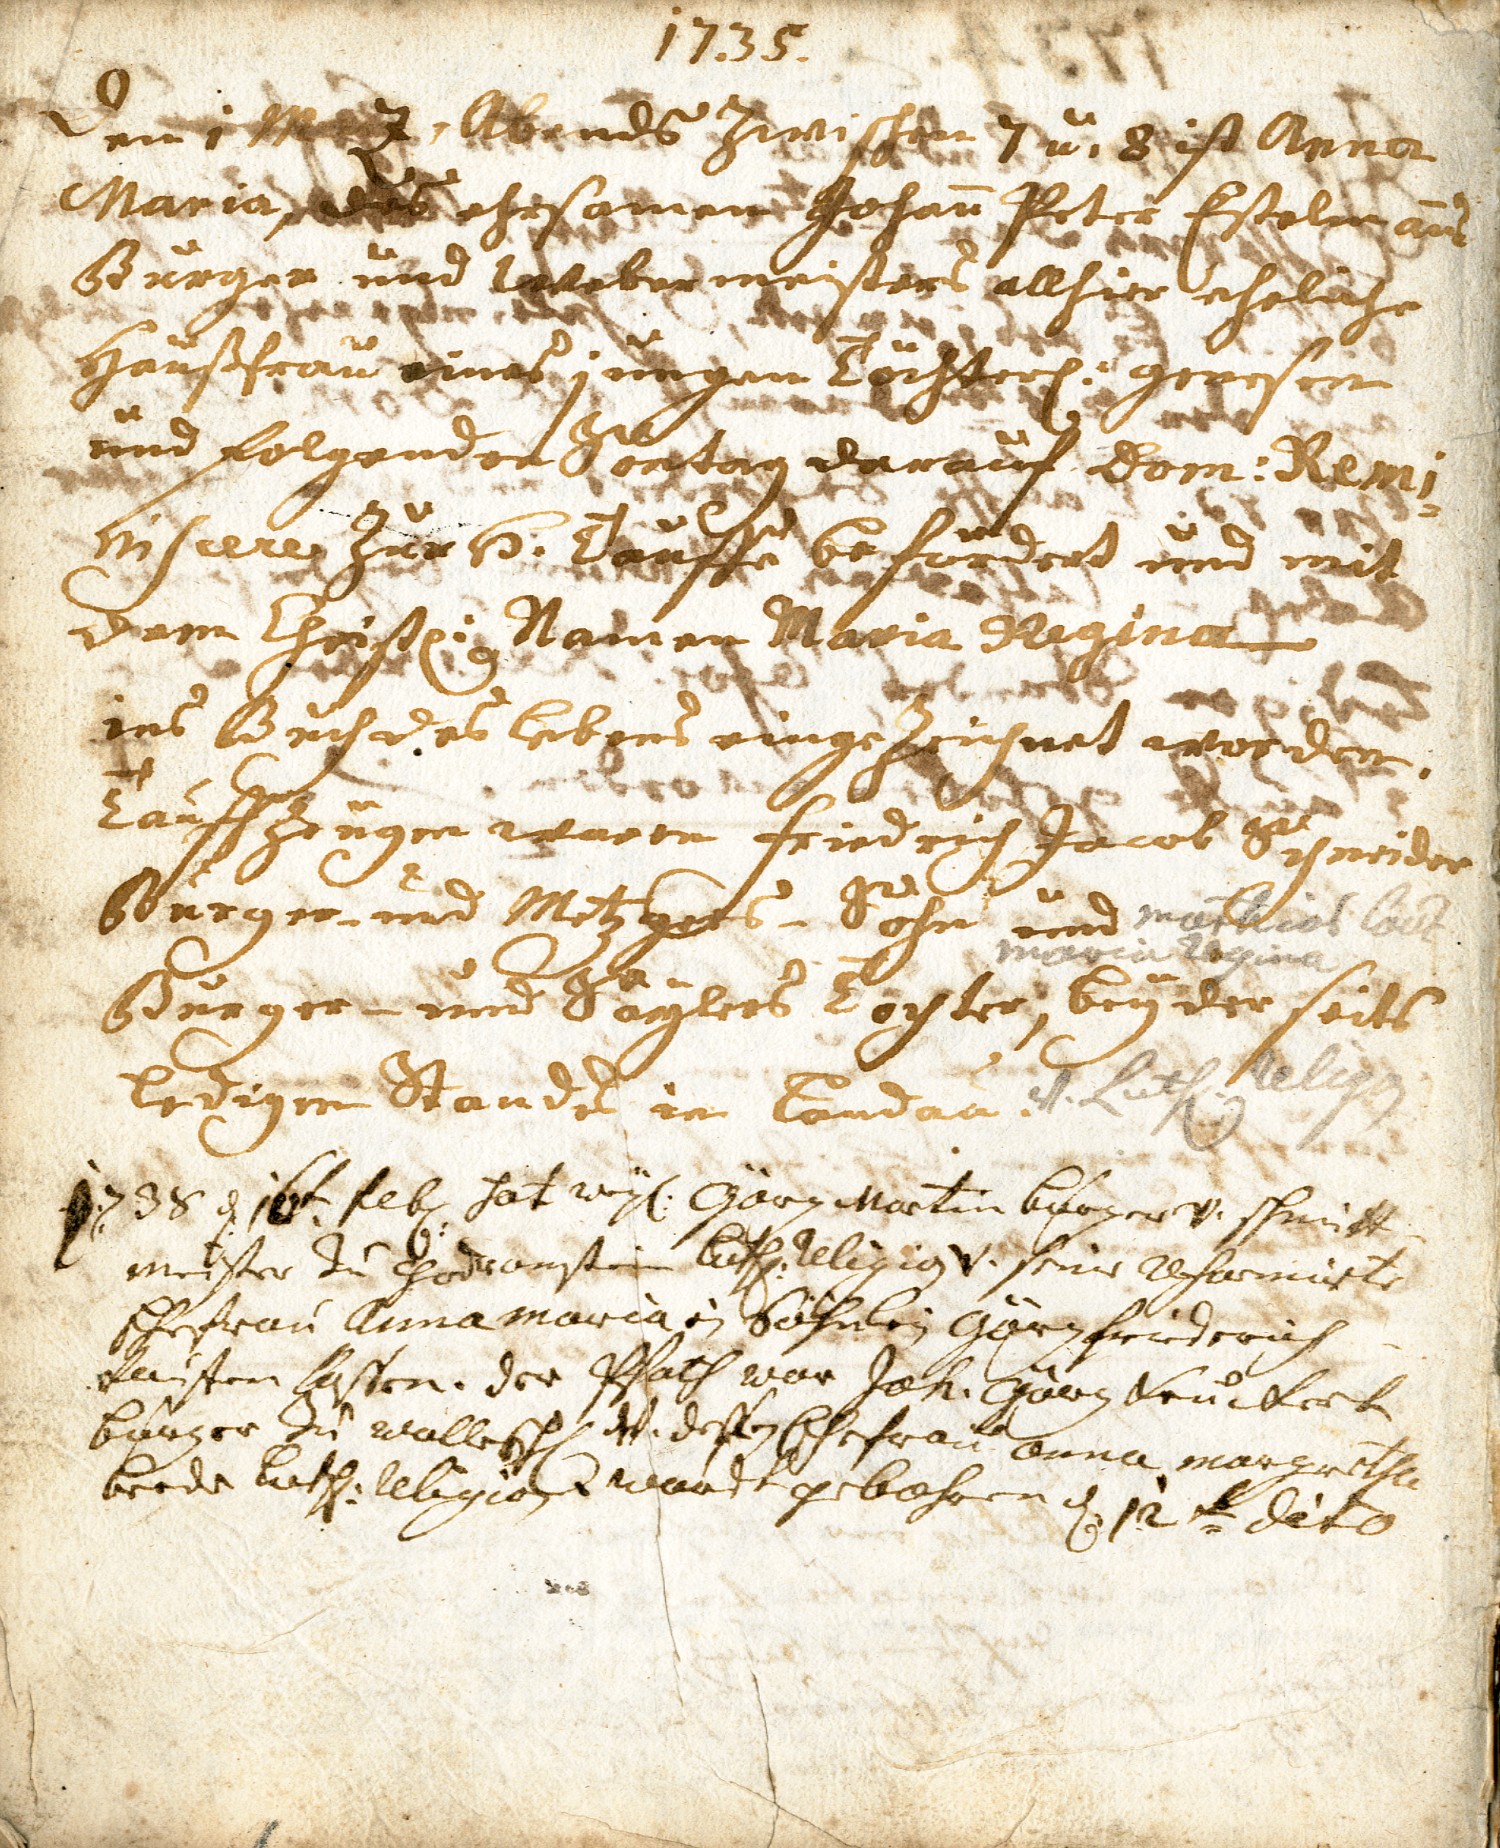 1735.
Den 1 Mertz, Abends Zwischen 7 u. 8 ist Anna
Maria, des ehrsamen Johan̄ Peter Estelmans
Burger und Webermeisters allhier eheliche
Haußfrau eines jungen Töchterl: genesen
und folgenden Sontag darauf Dom: Remi-
niscere Zur H. Tauffe befördert und mit
dem Christl: Namen Maria Regina
ins Buch des Lebens eingezeichnet worden.
Tauffzeugen waren Friedrich Jacob Schneider
Burger- und Metzgers- Sohn und Mathias
Maria Regina
Burger- und Säylers Tochter, beyder seits
Ledigen Stands in Landau. v. Luth. Relig.
1738 d. 16t. Feb. hat weyl: Görg Martin burger v. schmitt
meister zu Godramstein luth. Religion v. seine Reformirte
Ehefrau Anna Maria ein Söhnlein Görg friderich
tauffen lassen. der Pfath war Joh. Görg
burger zu v. dessen Ehefrau anna margretha
beede luth: Religion wardt gebohren d. 12t dito